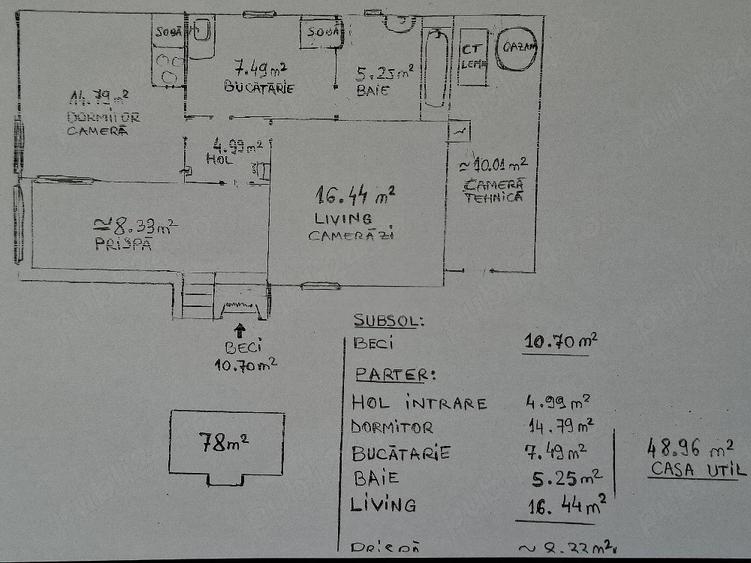 SOBĂ
SOBĂ
7.49 m²
BUCĂTĂRIE
5.25 m²
BAIE
CT
LEMN
14.79 m²
DORMITOR
CAMERĂ
4.99 m²
HOL
≃ 10.01 m²
CAMERĂ
TEHNICĂ
16.44 m²
LIVING
CAMERĂ ZI
≃ 8.33 m²
PRISPĂ
BECI
10.70 m²
78 m²
SUBSOL:
BECI 10.70 m²
PARTER:
HOL INTRARE 4.99 m²
DORMITOR 14.79 m²
BUCĂTARIE 7.49 m²
BAIE 5.25 m²
LIVING 16.44 m²
48.96 m²
CASA UTIL